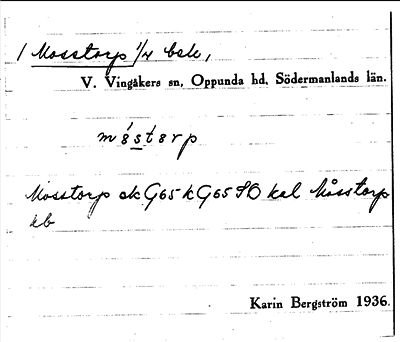 1 Mosstorp 1/4 bek,
V. Vingåkers sn, Oppunda hd, Södermanlands län.
Mosstorp ek G65 k G65 SB kal Måsstorp
kb
Karin Bergström 1936.